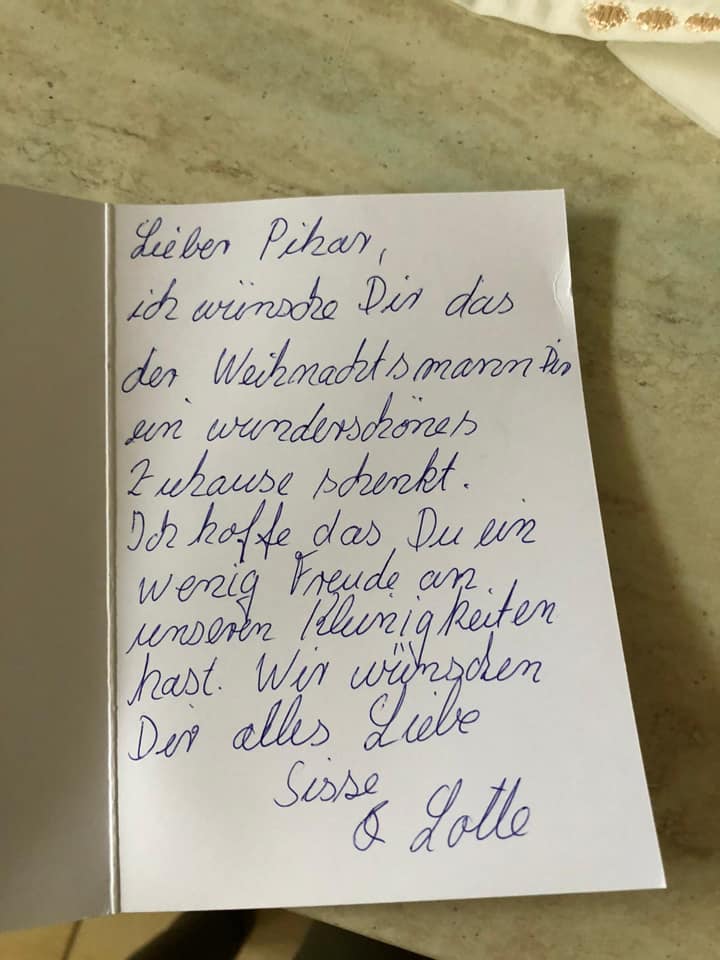 Lieber Pikar,
ich wünsche Dir das
der Weihnachtsmann Dir
ein wunderschönes
Zuhause schenkt.
Ich hoffe das Du ein
wenig Freude an
unseren Kleinigkeiten
hast. Wir wünschen
Dir alles Liebe
Sisse
& Lotte